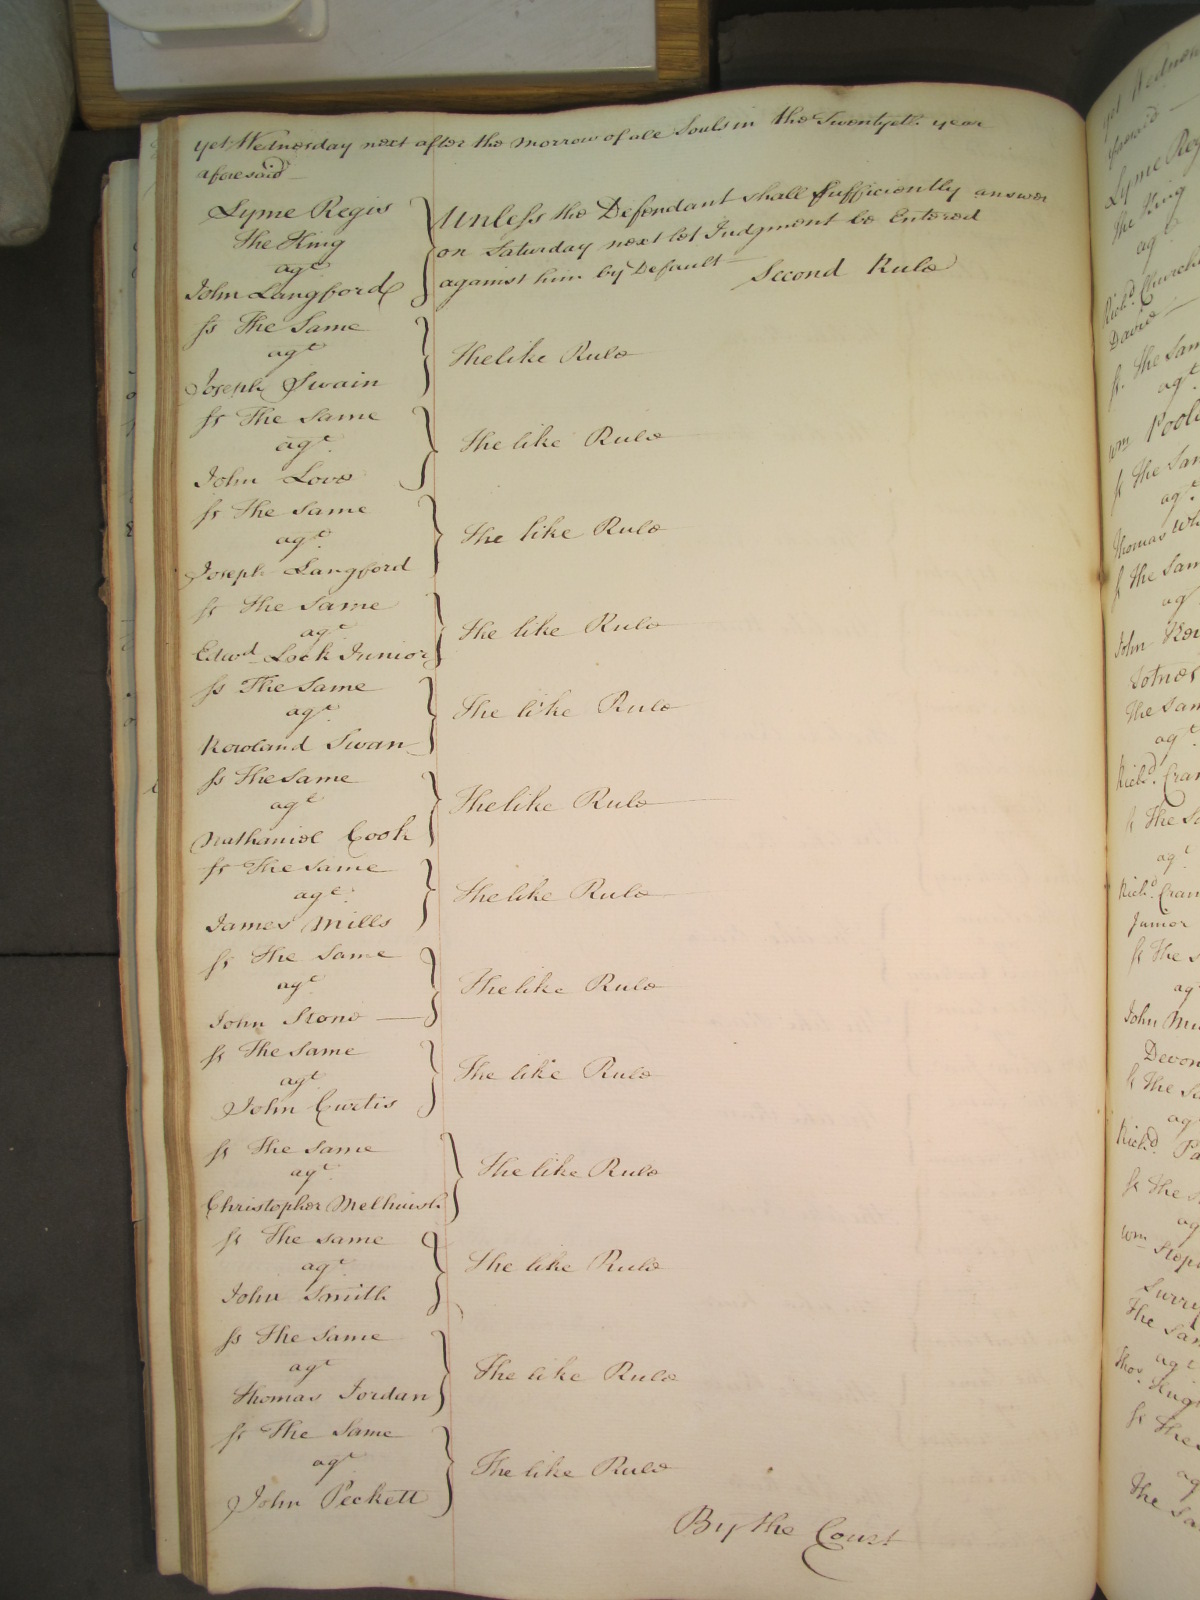 yet Wednesday next after the morrow of all Souls in the Twentyeth year
aforesaid
Lyme Regis
The King
agt
John Langford
Unless the Defendant shall sufficiently answer
on Saturday next let Judgment be Entered
against him by Default
Second Rule
ss The Same
agt
Joseph Swain
The like Rule
ss The Same
agt
John Love
The like Rule
ss The Same
agt
Joseph Langford
The like Rule
ss The Same
agt
Edwd Lock Junior
The like Rule
ss The Same
agt
Rowland Swan
The like Rule
ss The Same
agt
Nathaniel Cook
The like Rule
ss The Same
agt
James Mills
The like Rule
ss The Same
agt
John Stone
The like Rule
ss The Same
agt
John Curtis
The like Rule
ss The Same
agt
Christopher Melhuish
The like Rule
ss The Same
agt
John Smith
The like Rule
ss The Same
agt
Thomas Jordan
The like Rule
ss The Same
agt
John Peckett
The like Rule
By the Court
Lyme
The King
agt
Richd
David
ss The
agt
Wm
ss The
agt
Thomas
ss The
agt
John
Totnes
The
agt
Richd
ss The
agt
Richd
Junior
ss The
agt
John
ss The
agt
Richd
ss The
Wm
The
agt
Thos
ss The
The